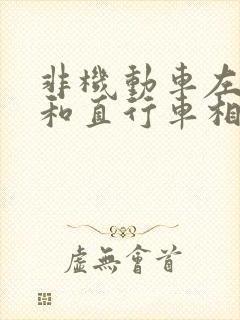 非機動車左
和直行車相
虛無會首